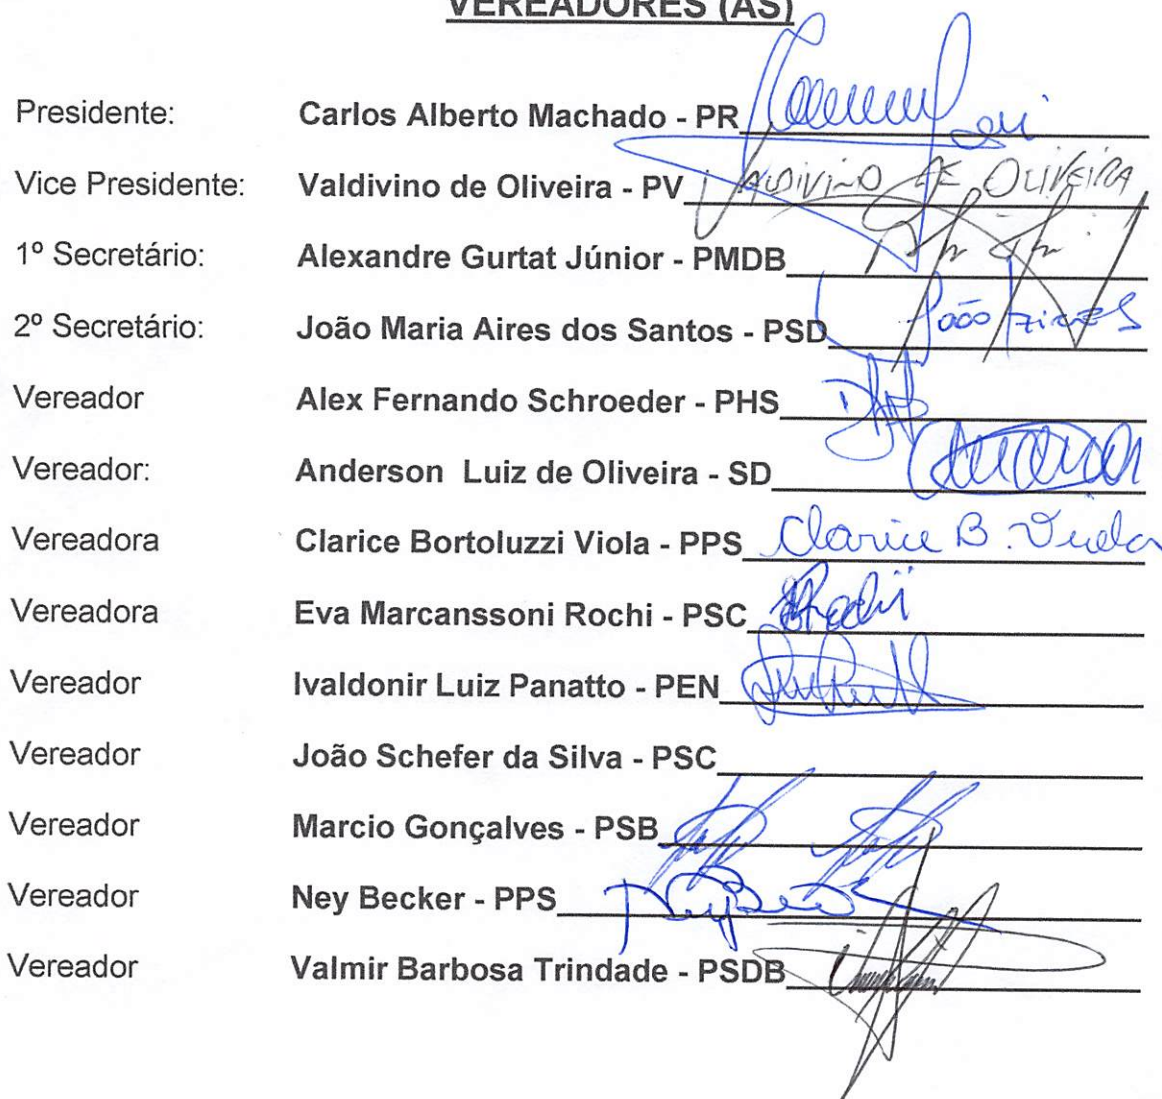 VEREADORES (AS)
Presidente: Carlos Alberto Machado - PR
Vice Presidente: Valdivino de Oliveira - PV VALDIVINO DE OLIVEIRA
1º Secretário: Alexandre Gurtat Júnior - PMDB
2º Secretário: João Maria Aires dos Santos - PSD João Aires
Vereador Alex Fernando Schroeder - PHS
Vereador: Anderson Luiz de Oliveira - SD
Vereadora Clarice Bortoluzzi Viola - PPS Clarice B. Viola
Vereadora Eva Marcanssoni Rochi - PSC Rochi
Vereador Ivaldonir Luiz Panatto - PEN
Vereador João Schefer da Silva - PSC
Vereador Marcio Gonçalves - PSB
Vereador Ney Becker - PPS
Vereador Valmir Barbosa Trindade - PSDB